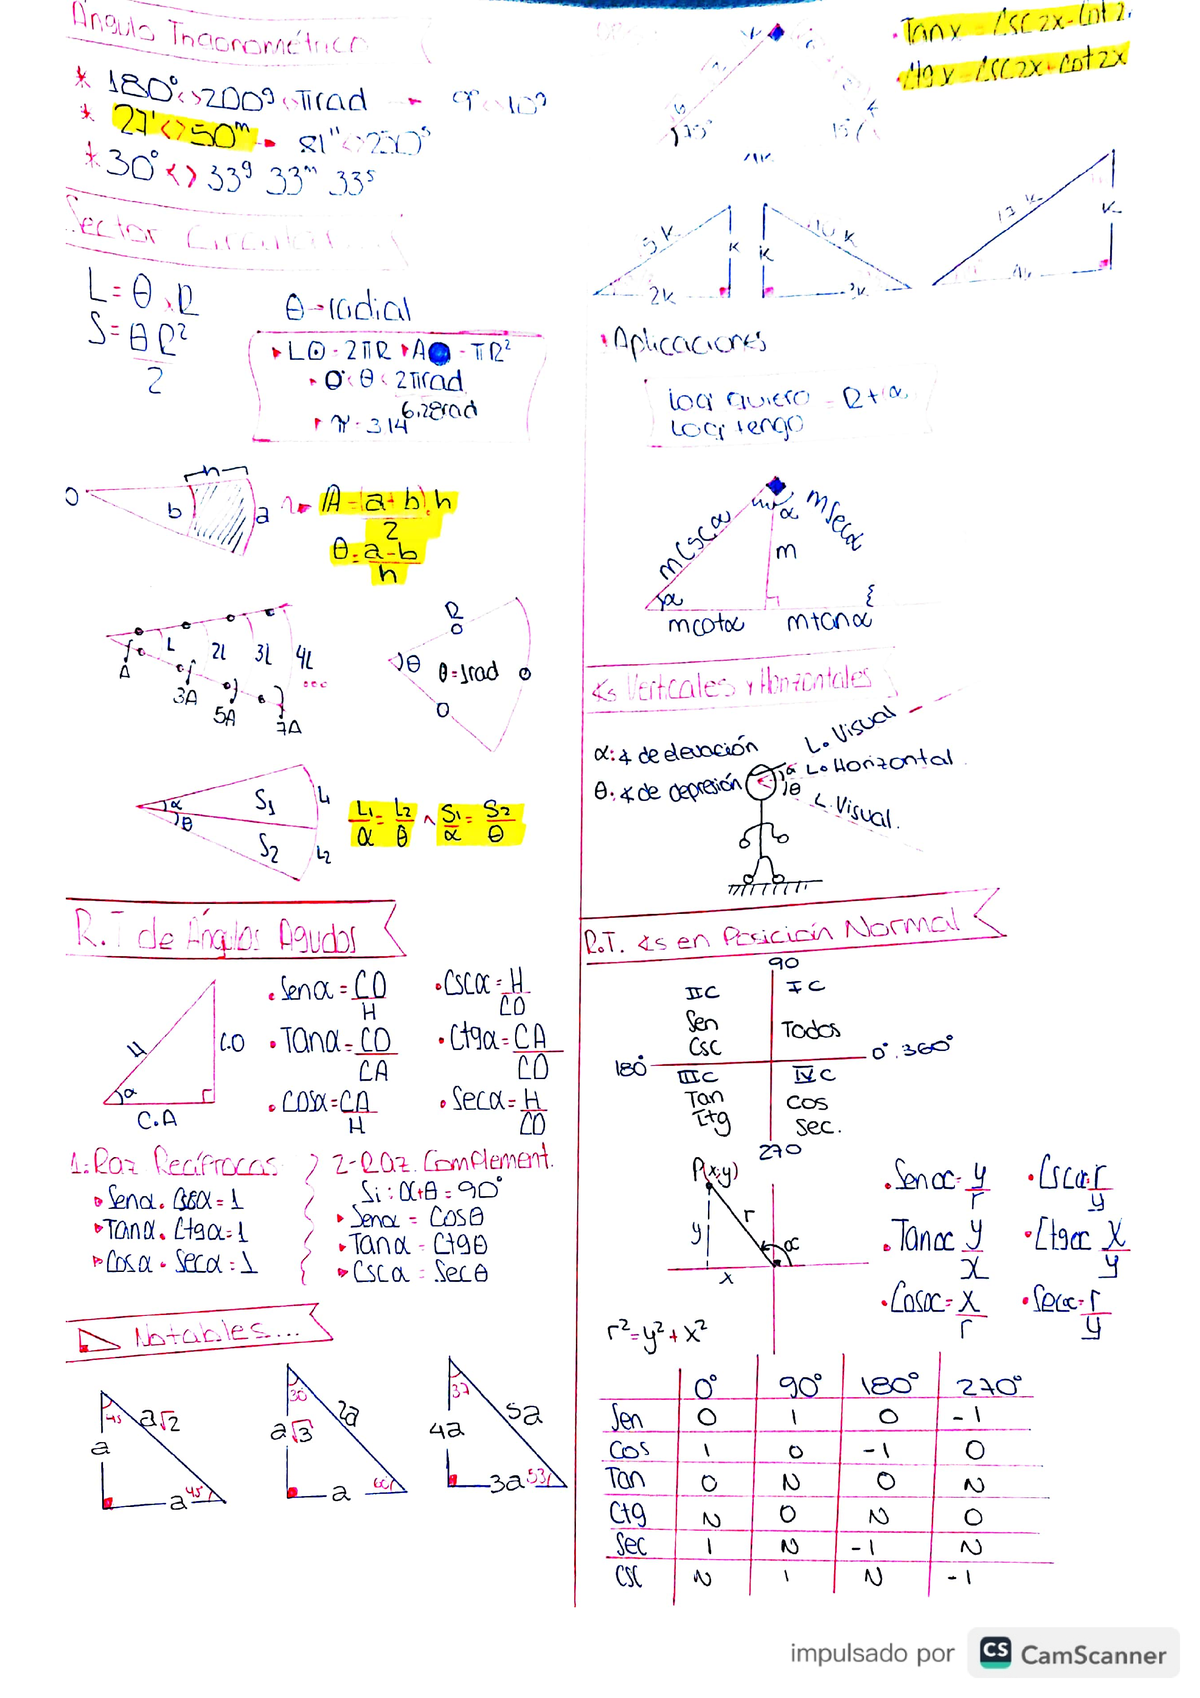 Ángulo Trigonométrico
* 180° <> 200g <> πrad → 9° <> 10g
* 27' <> 50m → 81" <> 250s
* 30° <> 33g 33m 33s
Sector Circular
L = θ.R
S = θR²
2
θ → radial
L⊙ = 2πR A = πR²
0 < θ < 2πrad
6.28rad
π = 3.14
O
b
h
a
A = (a+b)h
2
θ = a-b
h
A
L 2L 3L 4L
...
3A
5A
7A
R
θ θ = 1rad
α S₁ L₁
θ S₂ L₂
L₁ = L₂ ^ S₁ = S₂
α θ α θ
R.T de Ángulos Agudos
H
C.O
α
C.A
• Senα = CO
H
• Tanα = CO
CA
• Cosα = CA
H
• Cscα = H
CO
• Ctgα = CA
CO
• Secα = H
CO
1. Raz Recíprocas
Senα. Cscα = 1
Tanα. Ctgα = 1
Cosα. Secα = 1
2- Raz. Complement.
Si: α+θ = 90°
Senα = Cosθ
Tanα = Ctgθ
Cscα = Secθ
Notables...
45 a√2
a
a 45
30 2a
a√3
a 60
37 5a
4a
3a 53
• Tanx = Csc2x - Cot2x
• Ctgx = Csc2x + Cot2x
75°
15°
4k
k
2k
k
10k
3k
k
4k
• Aplicaciones
lo q' quiero = R.T α
lo q' tengo
mCscα
α
mSecα
m
α
mcotα mtanα
∡s Verticales y Horizontales
α: ∡ de elevación
θ: ∡ de depresión
L. Visual
α L. Horizontal
θ
L. Visual.
R.T. ∡s en Posición Normal
90
IIC IC
Sen
Csc
Todos
180° 0°.360°
IIIC IVC
Tan Cos
Ctg Sec.
270
P(x;y)
y
r
α
x
r² = y² + x²
• Senα = y
r
• Tanα y
x
• Cosα = x
r
• Cscα = r
y
• Ctgα x
y
• Secα = r
y
0° 90° 180° 270°
Sen 0 1 0 -1
Cos 1 0 -1 0
Tan 0 N 0 N
Ctg N 0 N 0
Sec 1 N -1 N
CSC N 1 N -1
impulsado por CS CamScanner